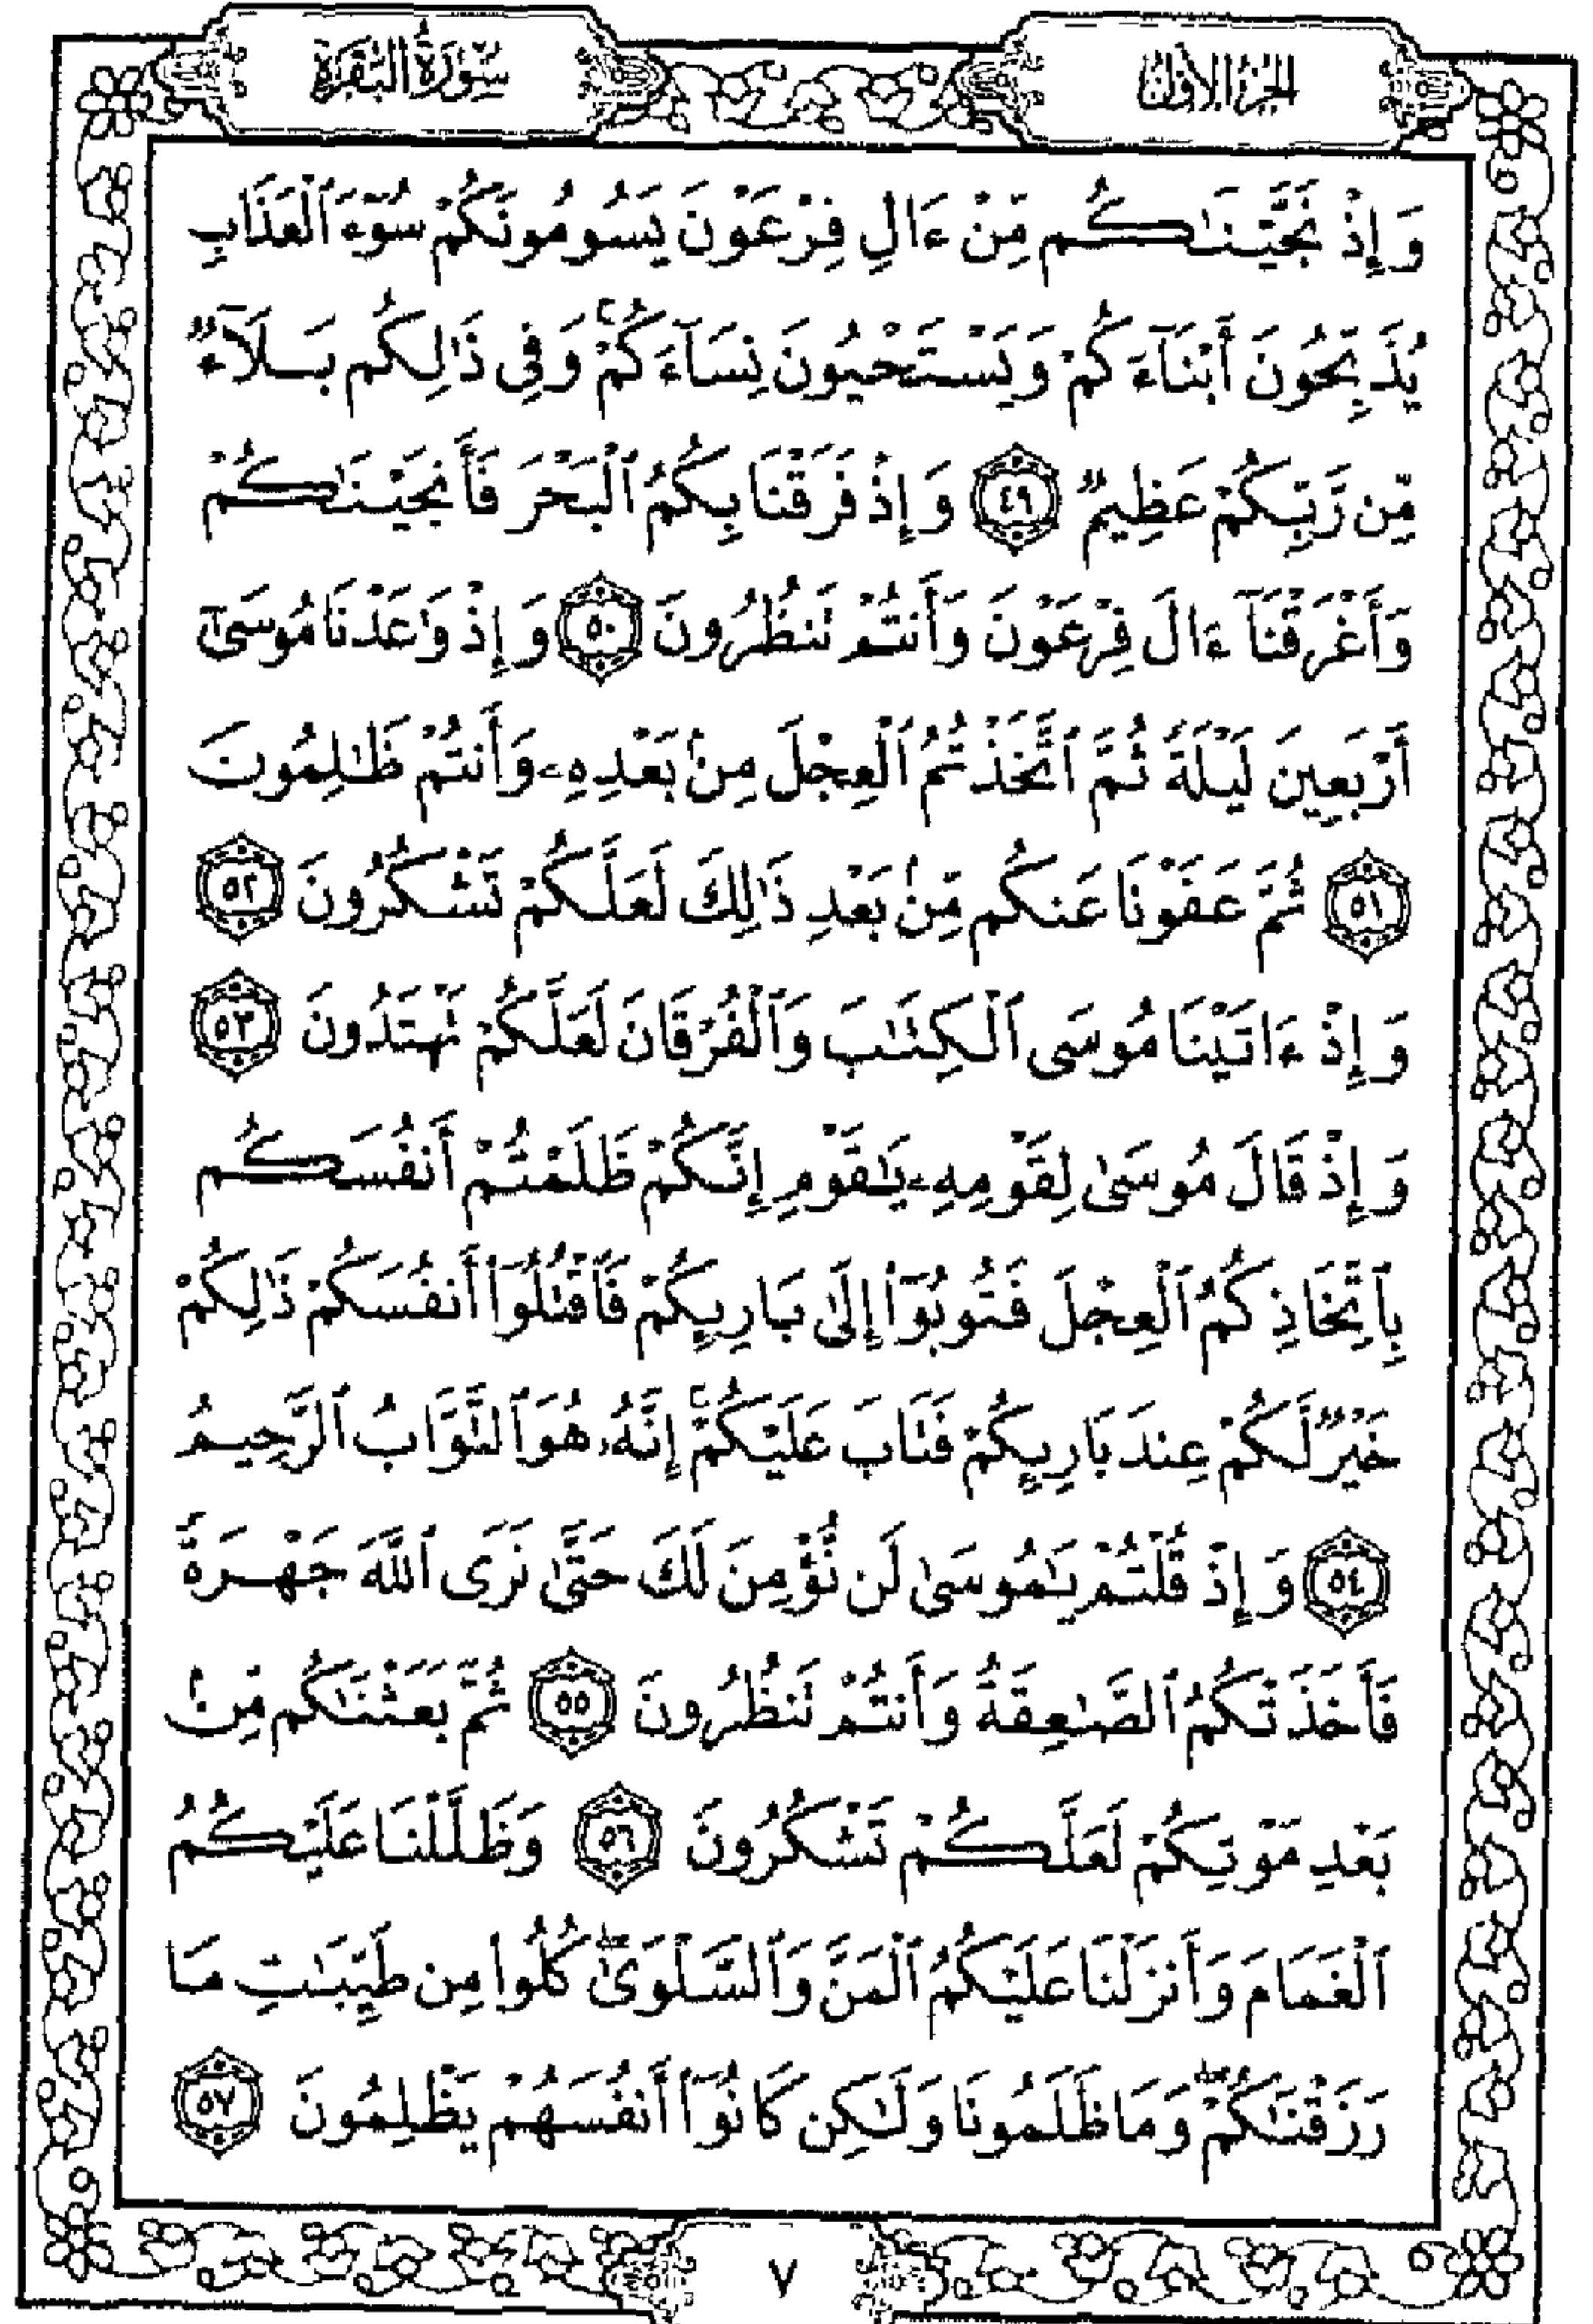 الجزء الأول
سورة البقرة
وَإِذْ نَجَّيْنَٰكُم مِّنْ ءَالِ فِرْعَوْنَ يَسُومُونَكُمْ سُوٓءَ ٱلْعَذَابِ
يُذَبِّحُونَ أَبْنَآءَكُمْ وَيَسْتَحْيُونَ نِسَآءَكُمْ ۚ وَفِى ذَٰلِكُم بَلَآءٌ
مِّن رَّبِّكُمْ عَظِيمٌ ٤٩ وَإِذْ فَرَقْنَا بِكُمُ ٱلْبَحْرَ فَأَنجَيْنَٰكُمْ
وَأَغْرَقْنَآ ءَالَ فِرْعَوْنَ وَأَنتُمْ تَنظُرُونَ ٥٠ وَإِذْ وَٰعَدْنَا مُوسَىٰٓ
أَرْبَعِينَ لَيْلَةً ثُمَّ ٱتَّخَذْتُمُ ٱلْعِجْلَ مِنۢ بَعْدِهِۦ وَأَنتُمْ ظَٰلِمُونَ
٥١ ثُمَّ عَفَوْنَا عَنكُم مِّنۢ بَعْدِ ذَٰلِكَ لَعَلَّكُمْ تَشْكُرُونَ ٥٢
وَإِذْ ءَاتَيْنَا مُوسَى ٱلْكِتَٰبَ وَٱلْفُرْقَانَ لَعَلَّكُمْ تَهْتَدُونَ ٥٣
وَإِذْ قَالَ مُوسَىٰ لِقَوْمِهِۦ يَٰقَوْمِ إِنَّكُمْ ظَلَمْتُمْ أَنفُسَكُم
بِٱتِّخَاذِكُمُ ٱلْعِجْلَ فَتُوبُوٓا۟ إِلَىٰ بَارِئِكُمْ فَٱقْتُلُوٓا۟ أَنفُسَكُمْ ذَٰلِكُمْ
خَيْرٌ لَّكُمْ عِندَ بَارِئِكُمْ فَتَابَ عَلَيْكُمْ ۚ إِنَّهُۥ هُوَ ٱلتَّوَّابُ ٱلرَّحِيمُ
٥٤ وَإِذْ قُلْتُمْ يَٰمُوسَىٰ لَن نُّؤْمِنَ لَكَ حَتَّىٰ نَرَى ٱللَّهَ جَهْرَةً
فَأَخَذَتْكُمُ ٱلصَّٰعِقَةُ وَأَنتُمْ تَنظُرُونَ ٥٥ ثُمَّ بَعَثْنَٰكُم مِّنۢ
بَعْدِ مَوْتِكُمْ لَعَلَّكُمْ تَشْكُرُونَ ٥٦ وَظَلَّلْنَا عَلَيْكُمُ
ٱلْغَمَامَ وَأَنزَلْنَا عَلَيْكُمُ ٱلْمَنَّ وَٱلسَّلْوَىٰ ۖ كُلُوا۟ مِن طَيِّبَٰتِ مَا
رَزَقْنَٰكُمْ ۖ وَمَا ظَلَمُونَا وَلَٰكِن كَانُوٓا۟ أَنفُسَهُمْ يَظْلِمُونَ ٥٧
٧